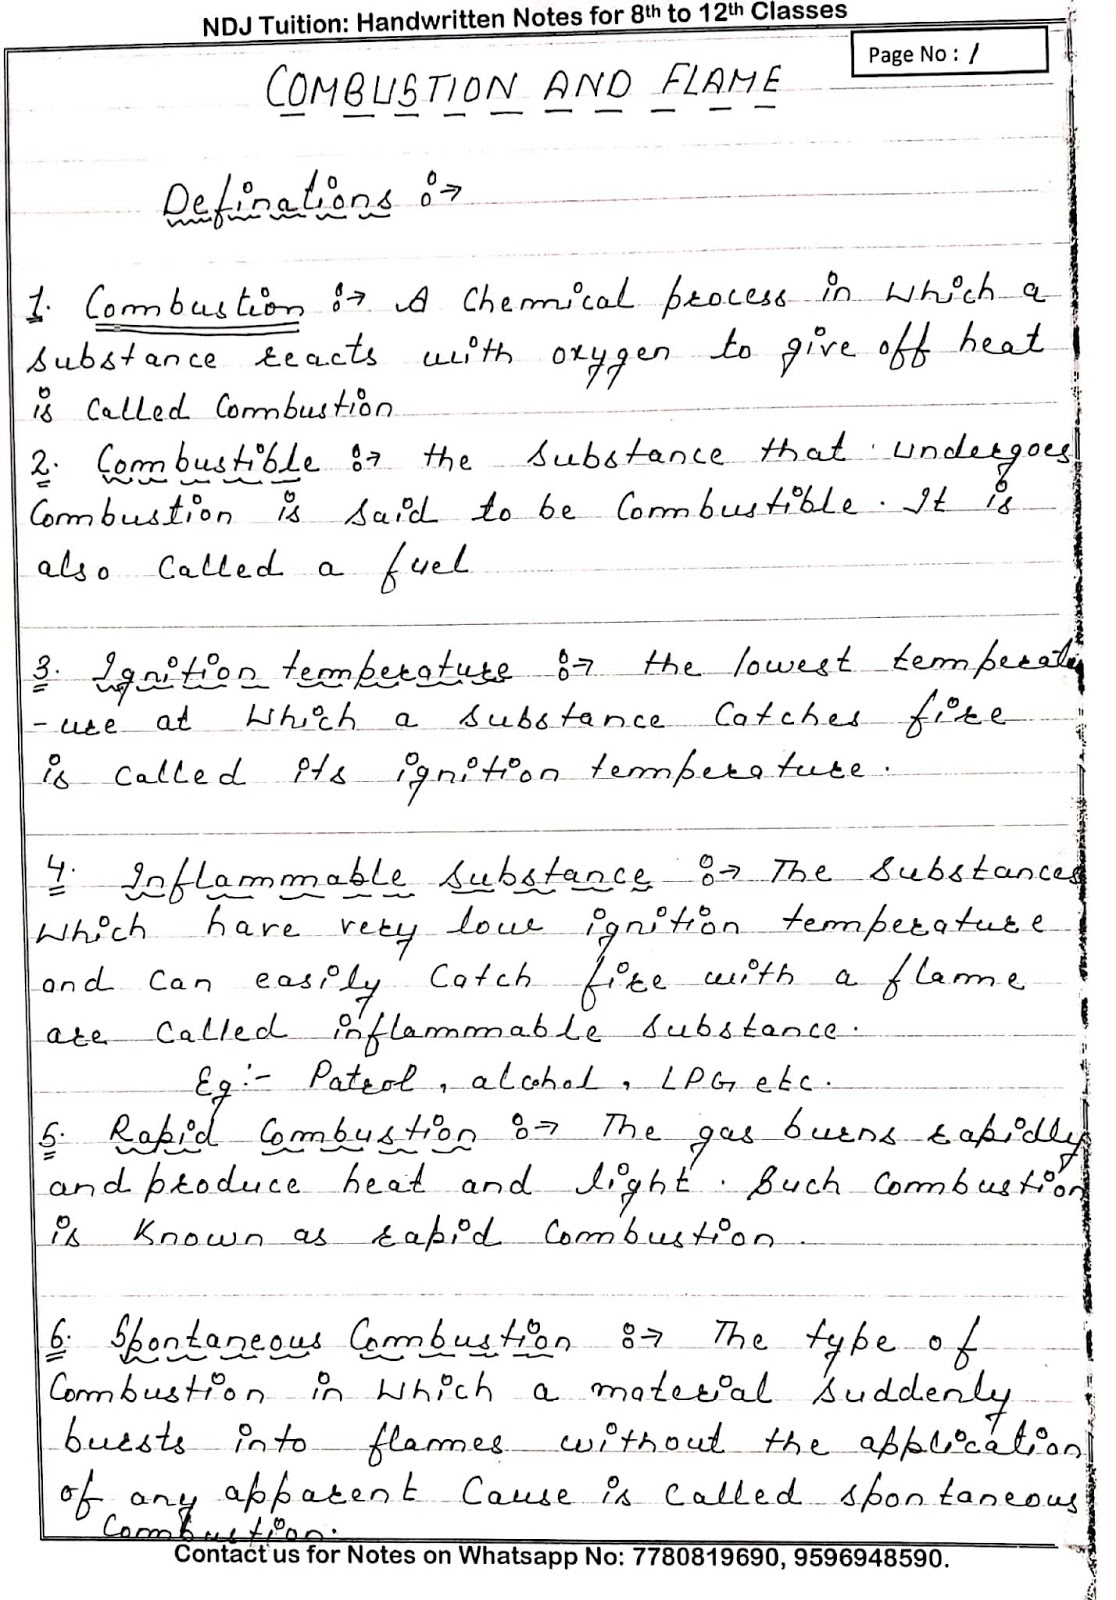 NDJ Tuition: Handwritten Notes for 8th to 12th Classes
Page No : 1
COMBUSTION AND FLAME
Definations :→
1. Combustion :→ A Chemical process in which a
substance reacts with oxygen to give off heat
is called Combustion
2. Combustible :→ the substance that undergoes
Combustion is said to be Combustible. It is
also called a fuel
3. Ignition temperature :→ the lowest temperat
-ure at which a substance Catches fire
is called its ignition temperature.
4. Inflammable substance :→ The substances
which have very low ignition temperature
and can easily Catch fire with a flame
are called inflammable substance.
Eg :- Patrol, alcohol, LPG, etc.
5. Rapid Combustion :→ The gas burns rapidly
and produce heat and light. Such Combustion
is known as rapid Combustion.
6. Spontaneous Combustion :→ The type of
Combustion in which a material suddenly
bursts into flames without the application
of any apparent Cause is called spontaneous
Combustion.
Contact us for Notes on Whatsapp No: 7780819690, 9596948590.